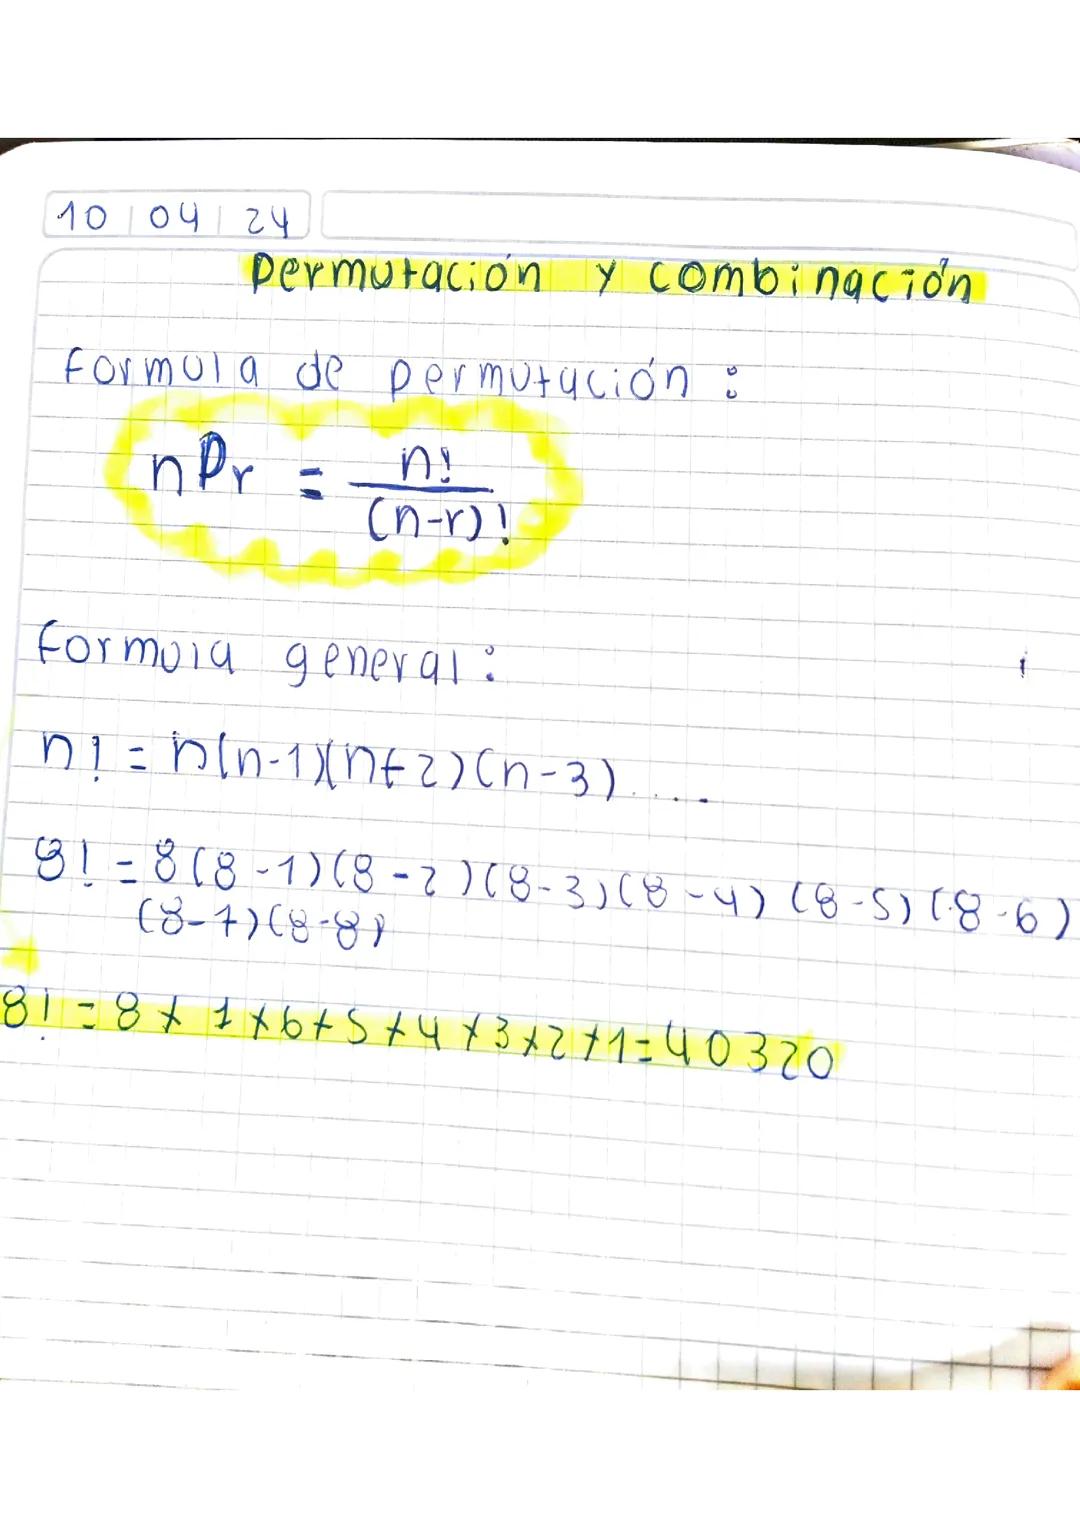 10 04 24
permutación y combinación
formula de permutación :
nPr = n!
(n-r)!
formula general :
n! = n(n-1)(n+2)(n-3).....
8! = 8(8-1)(8-2)(8-3)(8-4)(8-5)(8-6)
(8-7)(8-8)
8! = 8 x 7 x 6 x 5 x 4 x 3 x 2 x 1 = 40320